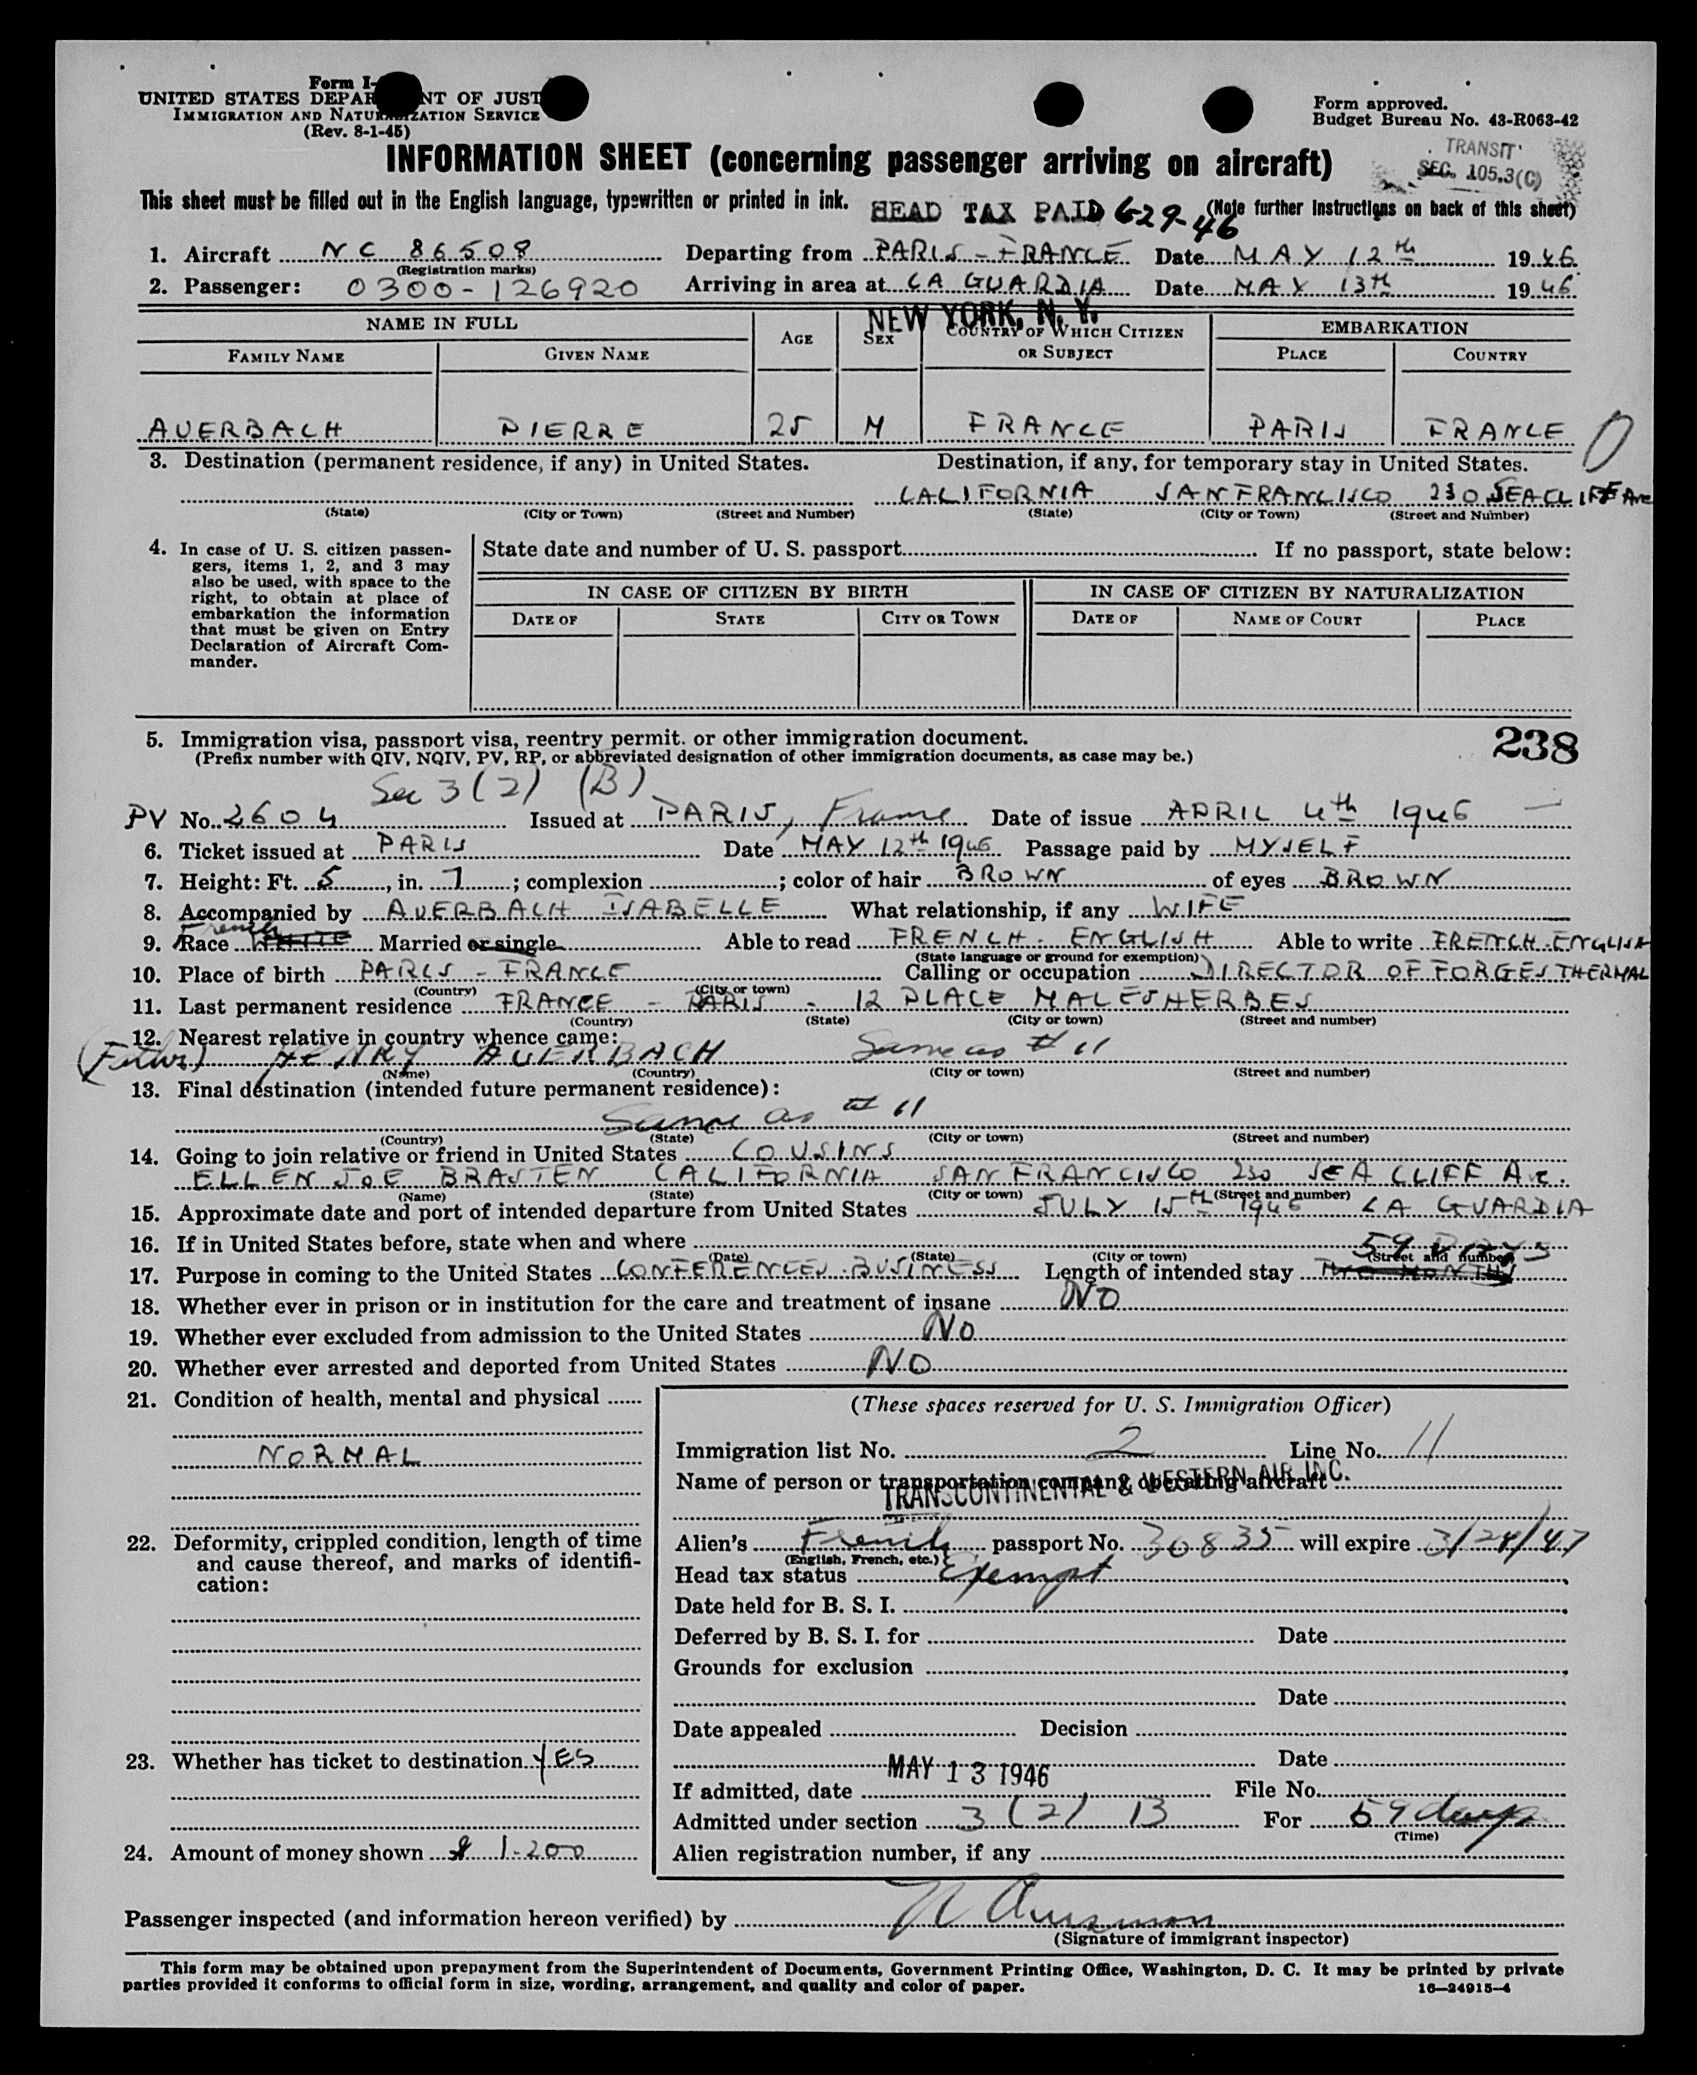 Form I-
UNITED STATES DEPAR NT OF JUST
IMMIGRATION AND NATURALIZATION SERVICE
(Rev. 8-1-45)
Form approved.
Budget Bureau No. 43-R063-42
INFORMATION SHEET (concerning passenger arriving on aircraft)
TRANSIT
SEC. 105.3(C)
This sheet must be filled out in the English language, typewritten or printed in ink. HEAD TAX PAID 6-29-46 (Note further instructions on back of this sheet)
1. Aircraft NC 86508 Departing from PARIS - FRANCE Date MAY 12th 1946
(Registration marks)
2. Passenger: 0300-126920 Arriving in area at LA GUARDIA Date MAY 13th 1946
NEW YORK, N. Y.
NAME IN FULL AGE SEX COUNTRY OF WHICH CITIZEN OR SUBJECT EMBARKATION
FAMILY NAME GIVEN NAME PLACE COUNTRY
AUERBACH PIERRE 25 M FRANCE PARIS FRANCE
3. Destination (permanent residence, if any) in United States. Destination, if any, for temporary stay in United States.
CALIFORNIA SAN FRANCISCO 230 SEACLIFF Ave
(State) (City or Town) (Street and Number) (State) (City or Town) (Street and Number)
4. In case of U. S. citizen passengers, items 1, 2, and 3 may also be used, with space to the right, to obtain at place of embarkation the information that must be given on Entry Declaration of Aircraft Commander.
State date and number of U. S. passport If no passport, state below:
IN CASE OF CITIZEN BY BIRTH IN CASE OF CITIZEN BY NATURALIZATION
DATE OF STATE CITY OR TOWN DATE OF NAME OF COURT PLACE
5. Immigration visa, passport visa, reentry permit, or other immigration document. 238
(Prefix number with QIV, NQIV, PV, RP, or abbreviated designation of other immigration documents, as case may be.)
Sec 3(2) (B)
PV No. 2604 Issued at PARIS, France Date of issue APRIL 4th 1946
6. Ticket issued at PARIS Date MAY 12th 1946 Passage paid by MYSELF
7. Height: Ft. 5, in. 7; complexion ; color of hair BROWN of eyes BROWN
8. Accompanied by AUERBACH ISABELLE What relationship, if any WIFE
French
9. Race WHITE Married or single Able to read FRENCH. ENGLISH Able to write FRENCH. ENGLISH
(State language or ground for exemption)
10. Place of birth PARIS - FRANCE Calling or occupation DIRECTOR OF FORGES THERMAL
(Country) (City or town)
11. Last permanent residence FRANCE - PARIS - 12 PLACE MALESHERBES
(Country) (State) (City or town) (Street and number)
12. Nearest relative in country whence came:
(Father) HENRY AUERBACH Same as # 11
(Name) (Country) (City or town) (Street and number)
13. Final destination (intended future permanent residence):
Same as # 11
(Country) (State) (City or town) (Street and number)
14. Going to join relative or friend in United States COUSINS
ELLEN JOE BRASTEN CALIFORNIA SAN FRANCISCO 230 SEA CLIFF Ave.
(Name) (State) (City or town) (Street and number)
15. Approximate date and port of intended departure from United States JULY 15th 1946 LA GUARDIA
16. If in United States before, state when and where
(Date) (State) (City or town) (Street and number)
59 DAYS
17. Purpose in coming to the United States CONFERENCES BUSINESS Length of intended stay TWO MONTHS
18. Whether ever in prison or in institution for the care and treatment of insane NO
19. Whether ever excluded from admission to the United States NO
20. Whether ever arrested and deported from United States NO
21. Condition of health, mental and physical
NORMAL
22. Deformity, crippled condition, length of time and cause thereof, and marks of identification:
23. Whether has ticket to destination YES
24. Amount of money shown $ 1.200
(These spaces reserved for U. S. Immigration Officer)
Immigration list No. 2 Line No. 11
Name of person or transportation company operating aircraft
TRANSCONTINENTAL & WESTERN AIR INC.
Alien's French passport No. 30835 will expire 3/24/47
(English, French, etc.)
Head tax status Exempt
Date held for B. S. I.
Deferred by B. S. I. for Date
Grounds for exclusion
Date
Date appealed Decision
Date
If admitted, date MAY 13 1946 File No.
Admitted under section 3(2) B For 59 days
(Time)
Alien registration number, if any
Passenger inspected (and information hereon verified) by
(Signature of immigrant inspector)
This form may be obtained upon prepayment from the Superintendent of Documents, Government Printing Office, Washington, D. C. It may be printed by private
parties provided it conforms to official form in size, wording, arrangement, and quality and color of paper. 16—24915-4